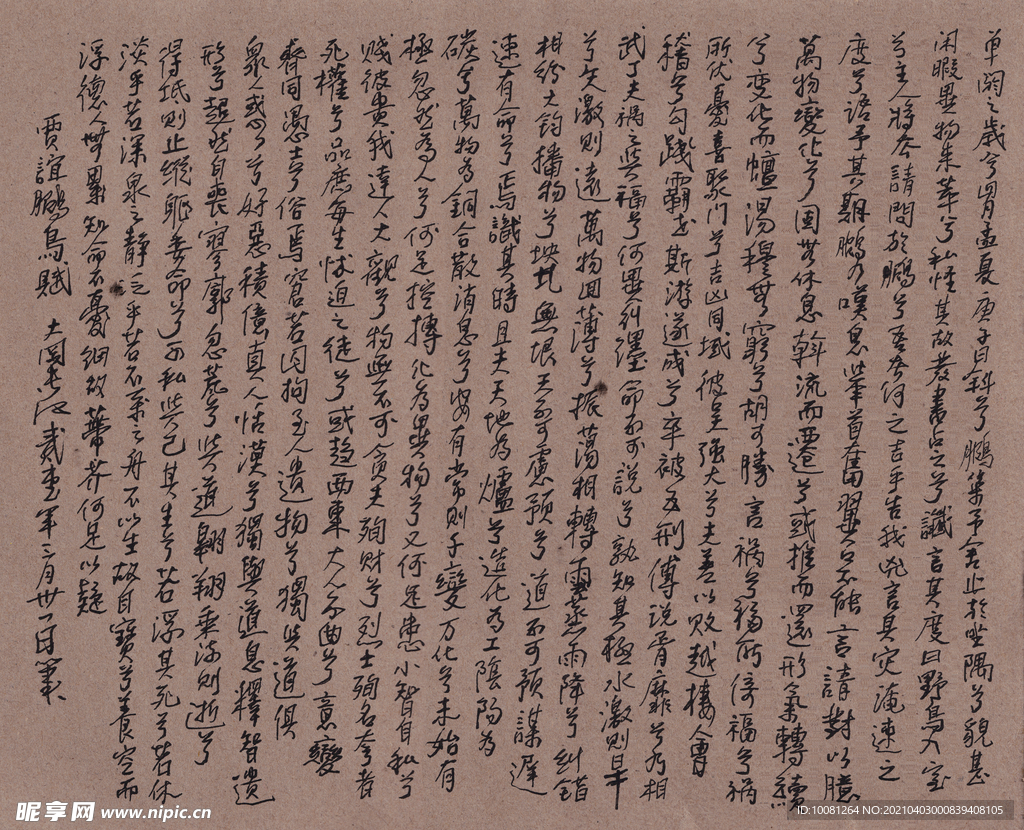 單閼之歲兮四月孟夏庚子日斜兮鵩集予舍止於坐隅兮貌甚
閑暇異物來萃兮私怪其故發書占之兮讖言其度曰野鳥入室
兮主人將去請問於鵩兮吾去何之吉乎告我凶言其灾淹速之
度兮語予其期鵩乃嘆息舉首奮翼口不能言請對以臆
萬物變化兮固無休息斡流而遷兮或推而還形氣轉續
兮變化而蟺沕穆無窮兮胡可勝言禍兮福所倚福兮禍
所伏憂喜聚門兮吉凶同域彼吳強大兮夫差以敗越棲會
稽兮勾踐霸世斯游遂成兮卒被五刑傅說胥靡兮乃相
武丁夫禍之與福兮何異糾纆命不可說兮孰知其極水激則旱
兮矢激則遠萬物回薄兮振蕩相轉雲蒸雨降兮糾錯
相紛大鈞播物兮坱圠無垠天不可慮預兮道不可預謀遲
速有命兮焉識其時且夫天地為爐兮造化為工陰陽為
碳兮萬物為銅合散消息兮安有常則千變万化兮未始有
極忽然為人兮何足控摶化為異物兮又何足患小智自私兮
賤彼貴我達人大觀兮物無不可貪夫殉財兮烈士殉名夸者
死權兮品庶每生怵迫之徒兮或趨西東大人不曲兮意變
齊同愚士兮俗焉窘若囚拘至人遺物兮獨與道俱
眾人惑惑兮好惡積億真人恬漠兮獨與道息釋智遺
形兮超然自喪寥廓忽荒兮與道翱翔乘流則逝兮
得坻則止縱軀委命兮不私與己其生兮若浮其死兮若休
淡乎若深泉之靜泛乎若不繫之舟不以生故自寶兮養空而
浮德人無累知命不憂細故蒂芥何足以疑
賈誼鵩鳥賦 年三月廿一日
昵享网 www.nipic.cn
ID:10081264 NO:20210403000839408105